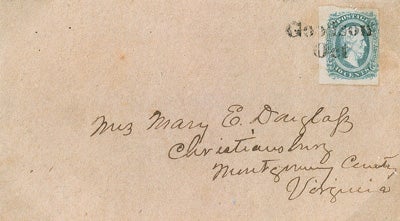 Goodson
Oct
POSTAGE
Mrs Mary E. Douglass
Christiansburg
Montgomery County
Virginia